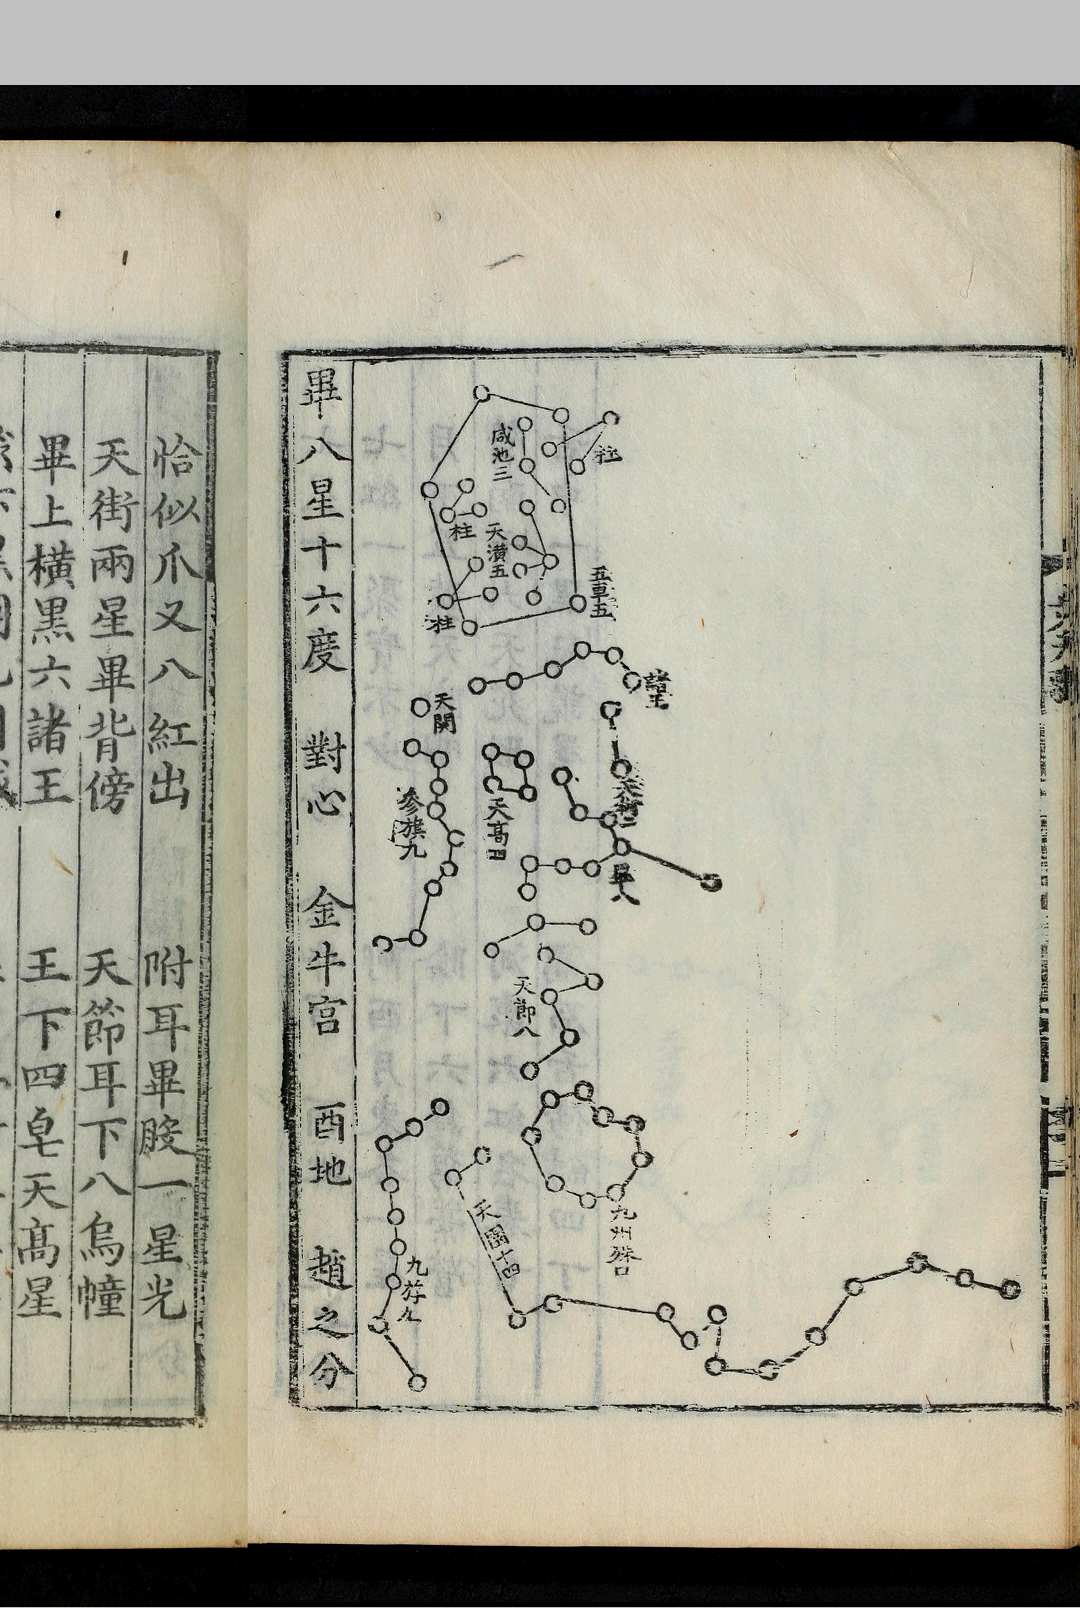 畢八星十六度 對心 金牛宮 酉地 趙之分
咸池三
柱
柱
天潢五
五車五
柱
諸王
天関
天街二
参旗九
天髙四
畢八
天節八
九州殊口
天園十四
九斿九
恰似爪又八紅出 附耳畢股一星光
天街兩星畢背傍 天節耳下八烏幢
畢上橫黒六諸王 王下四皂天髙星